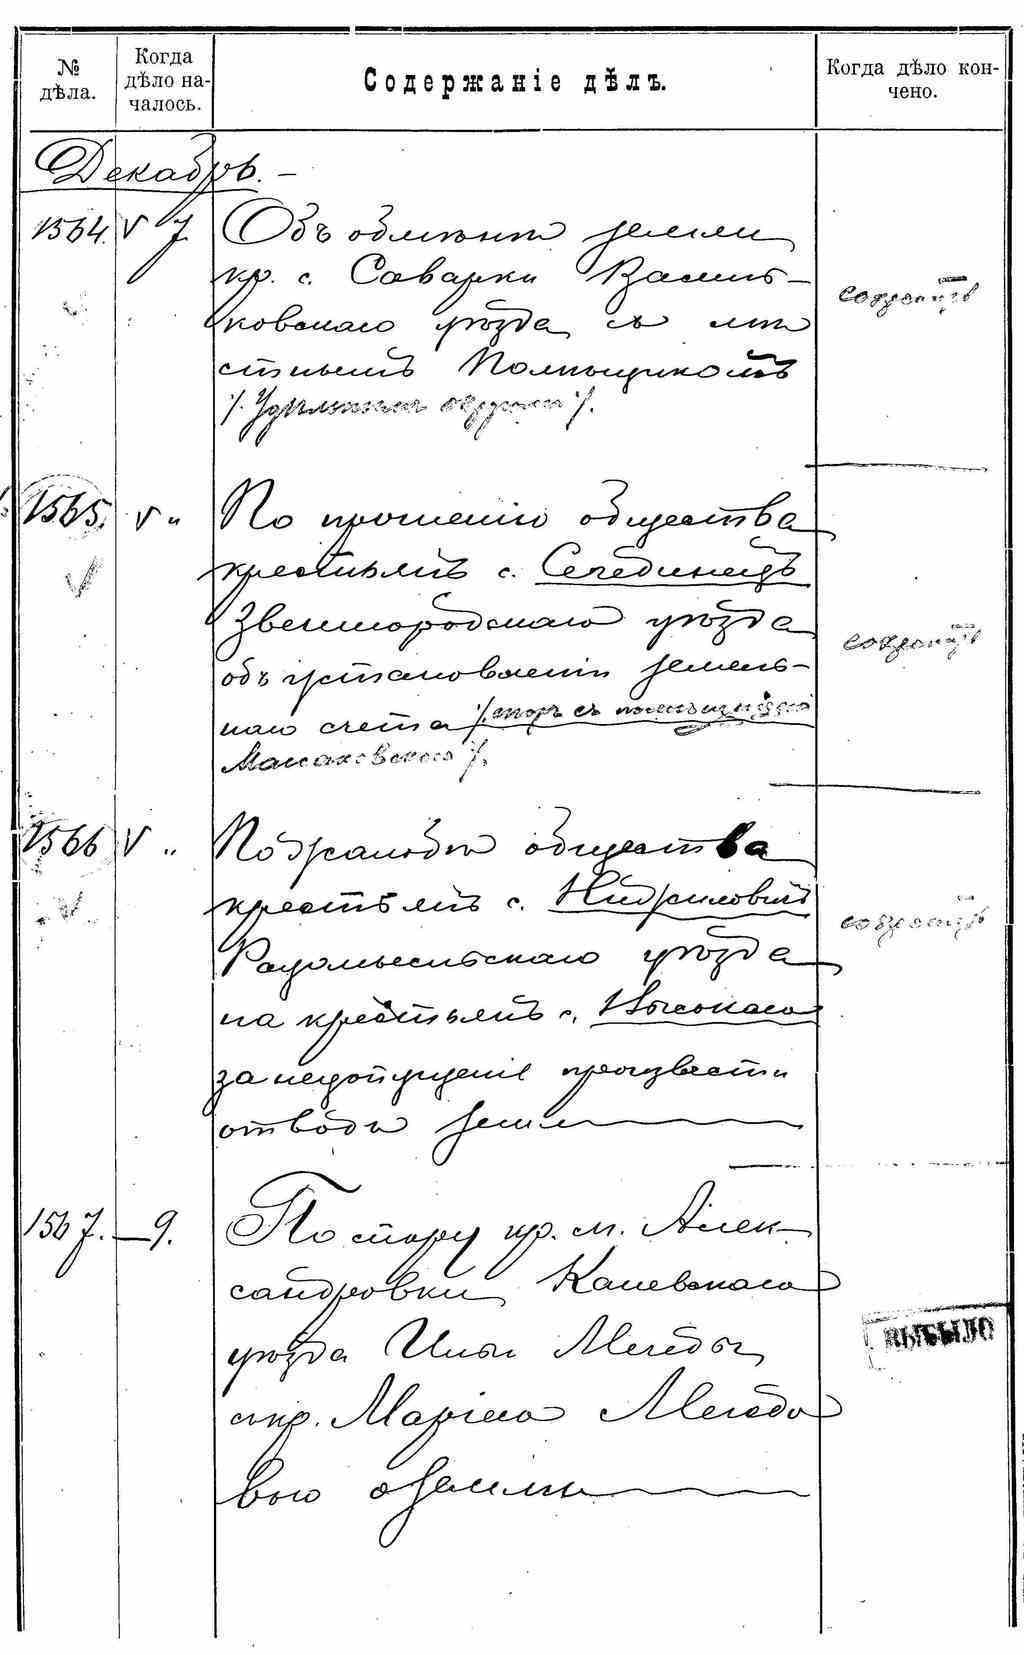 № дѣла.
Когда дѣло на-чалось.
Содержаніе дѣлъ.
Когда дѣло кон-чено.
Декабрь. –
1564. V 7.
Объ обмѣнѣ земли
кр. с. Саварки Василь-
ковскаго уѣзда съ мѣ
стнымъ Помѣщикомъ
1565. V "
По прошенію общества
крестьянъ с. Серединецъ
Звенигородскаго уѣзда
объ установленіи земель-
наго счета /споръ съ помѣщицею
1566 V "
По жалобѣ общества
крестьянъ с.
Радомысльскаго уѣзда
на крестьянъ с. Высокаго
за недопущеніе произвести
отводъ земли
1567. – 9.
По спору кр. м. Алек-
сандровки Каневскаго
уѣзда Ильи
съ кр. Маріею
вою о землѣ
ВЫБЫЛО